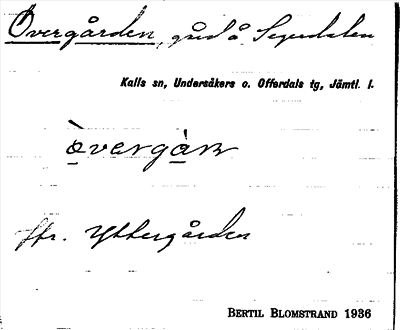 Övergården, gård å Sejerdalen
Kalls sn, Undersåkers o. Offerdals tg, Jämtl. l.
òvergàɴ
jfr. Yttergården
BERTIL BLOMSTRAND 1936